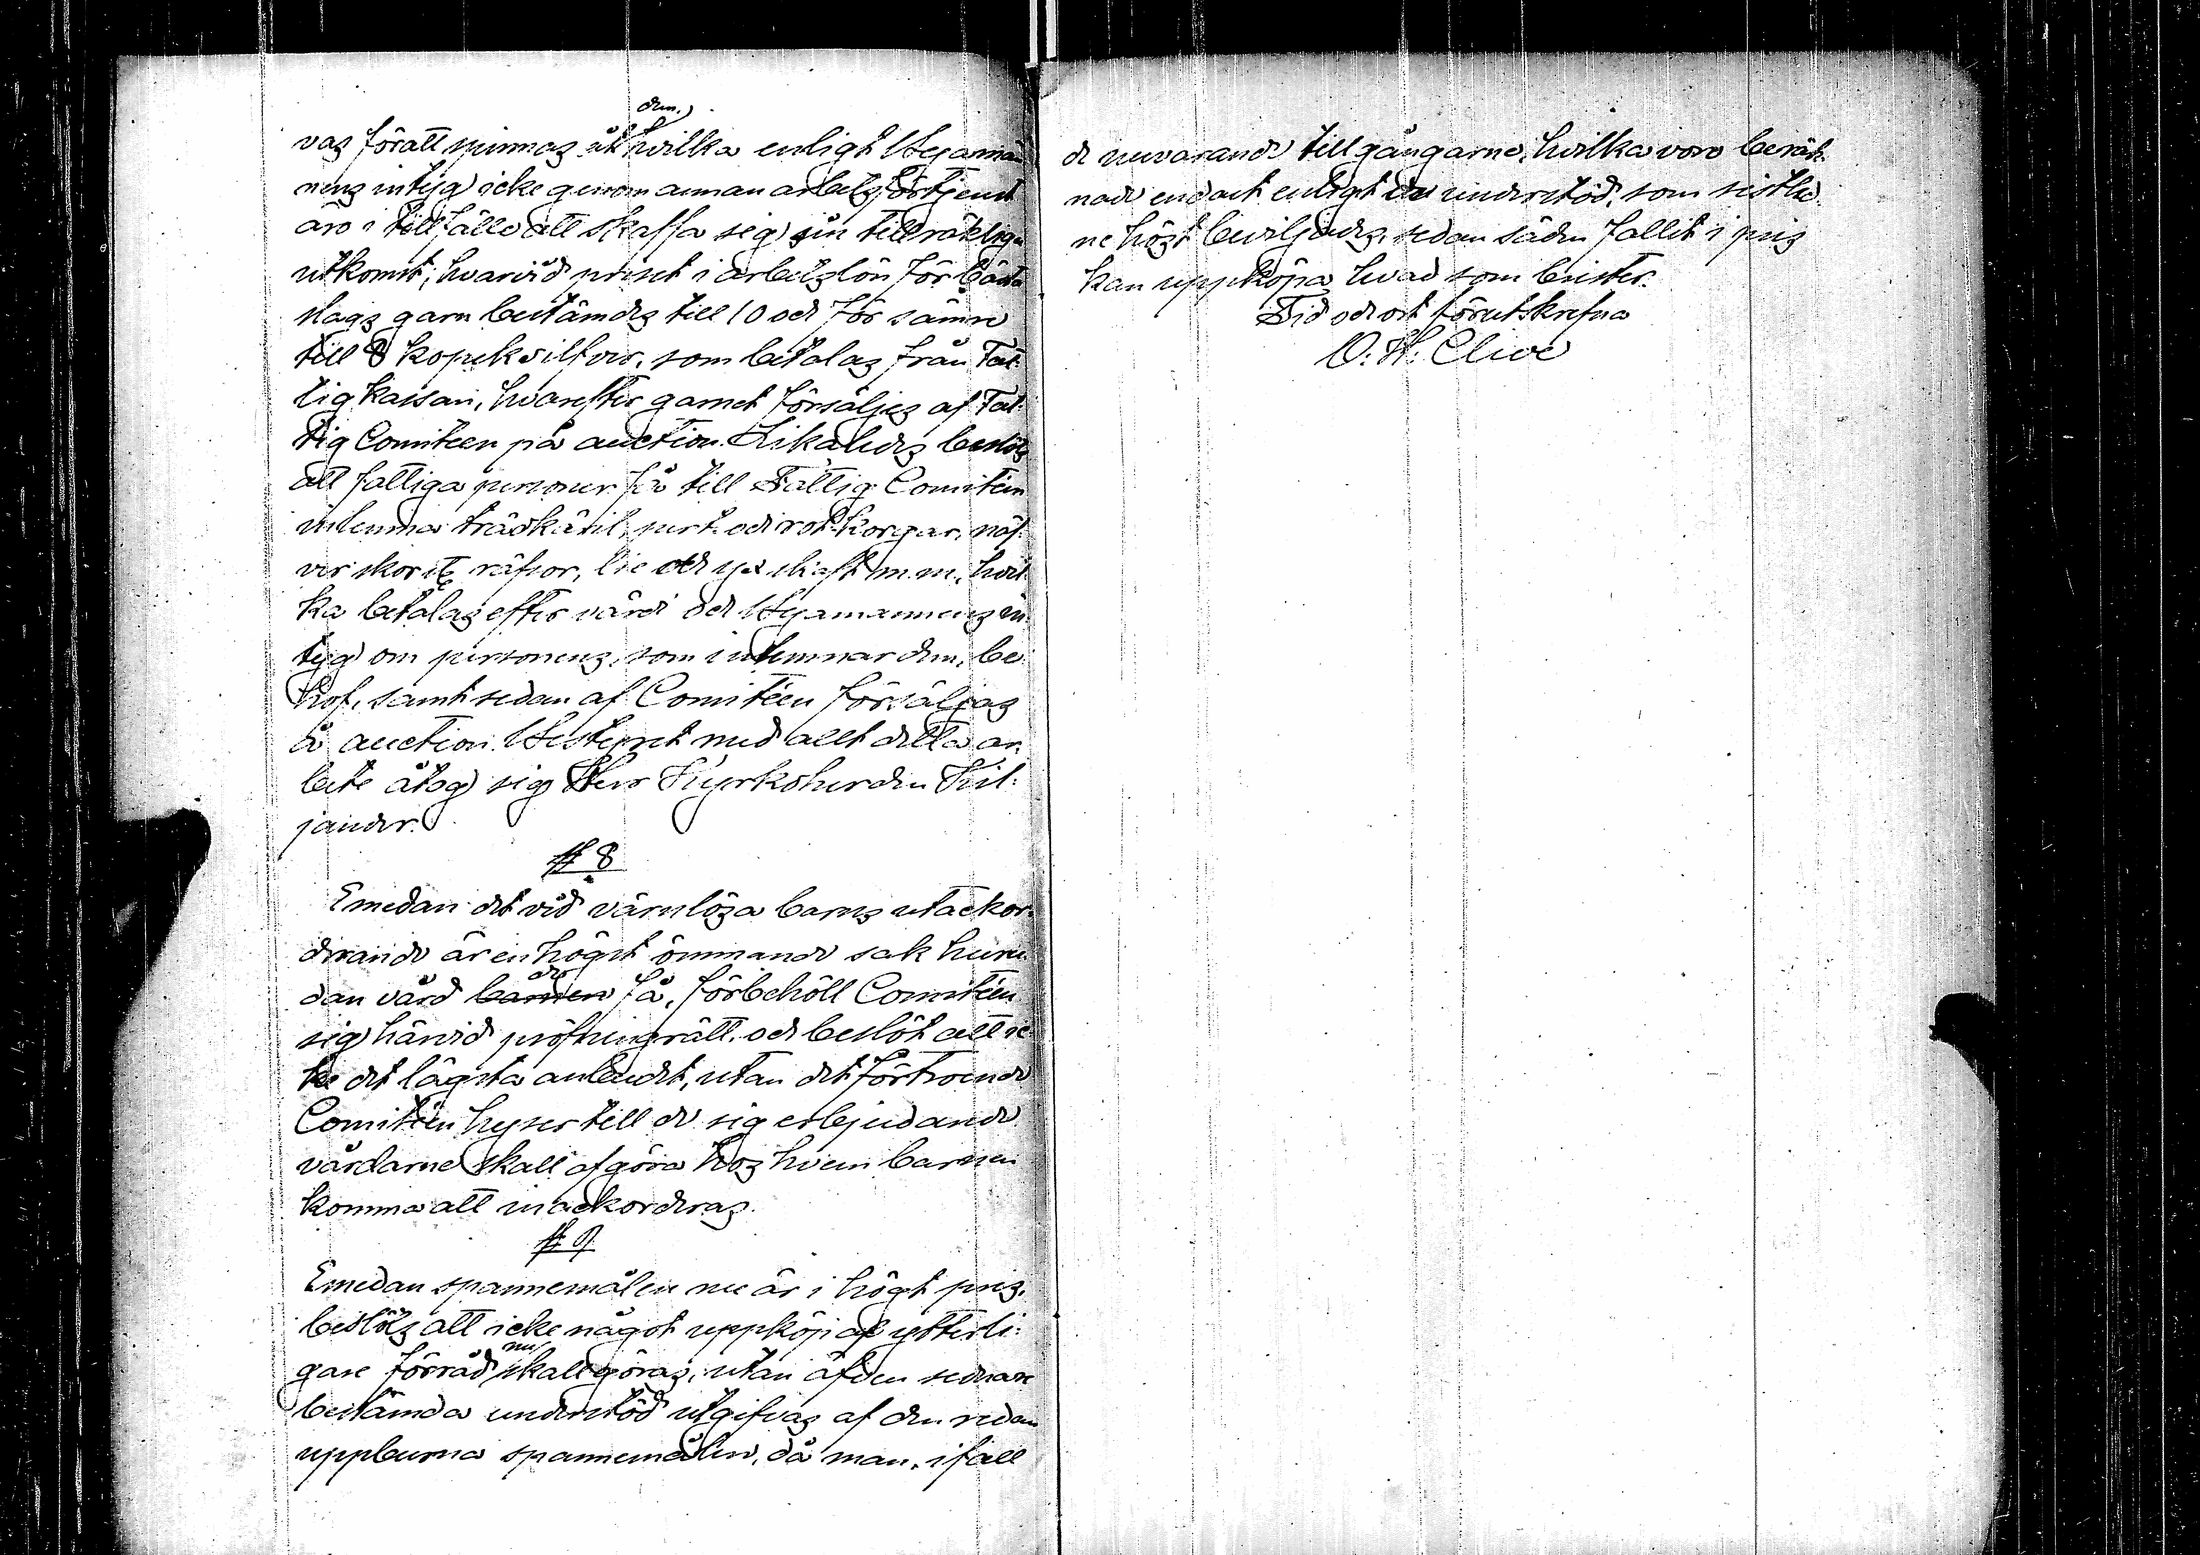 dem,
vas föratt spinnas åt hvilka enligt Byamän-
nens intyg icke genom annan arbetsförtjenst
äro i tillfälle att skaffa sig sin tillräkliga
utkomst; hvarvid priset i arbetslön för bästa
slags garn bestämdes till 10 och för sämre
till 8 kopek silfver, som betalas från Fat-
tigkassan, hvarefter garnet försäljes af Fat-
tig Comiteen på auction. Likaledes beslöts
att fattiga personer få till Fattig Comitéen
inlemna trädkäril, pert- och rot-korgar, näf-
verskor, räfsor, lie och yx skaft m. m., hvil-
ka betalas efter värde och Byamannens in-
tyg om personens, som inlemnar dem, be-
hof, samt sedan af Comitéen försäljas
å auction. Bestyret med allt detta ar-
bete åtog sig Herr Kyrkoherden Kil-
jander.
§ 8
Emedan det vid värnlösa barns utackor-
derande är en högst ömmande sak huru-
de
dan vård barnen få, förbehöll Comitéen
sig härvid pröfningsrätt, och beslöt att ic-
ke det lägsta anbudet, utan det förtroende
Comitéen hyser till de sig erbjudande
vårdarne skall afgöra hos hvem barnen
komma att inackorderas.
§ 9
Emedan spannemålen nu är i högt pris,
beslöts att icke något uppköp af ytterli-
nu
gare förråd skall göras, utan äfven sednare
bestämda understöd utgifvas af den redan
uppburna spannemålen, då man, ifall
de nuvarande tillgångarne, hvilka voro beräk-
nade endast enligt de understöd, som sistlid-
ne höst beviljades, sedan säden fallit i pris
kan uppköpa hvad som brister.
Tid och ort förutskrefna
O. H. Clive